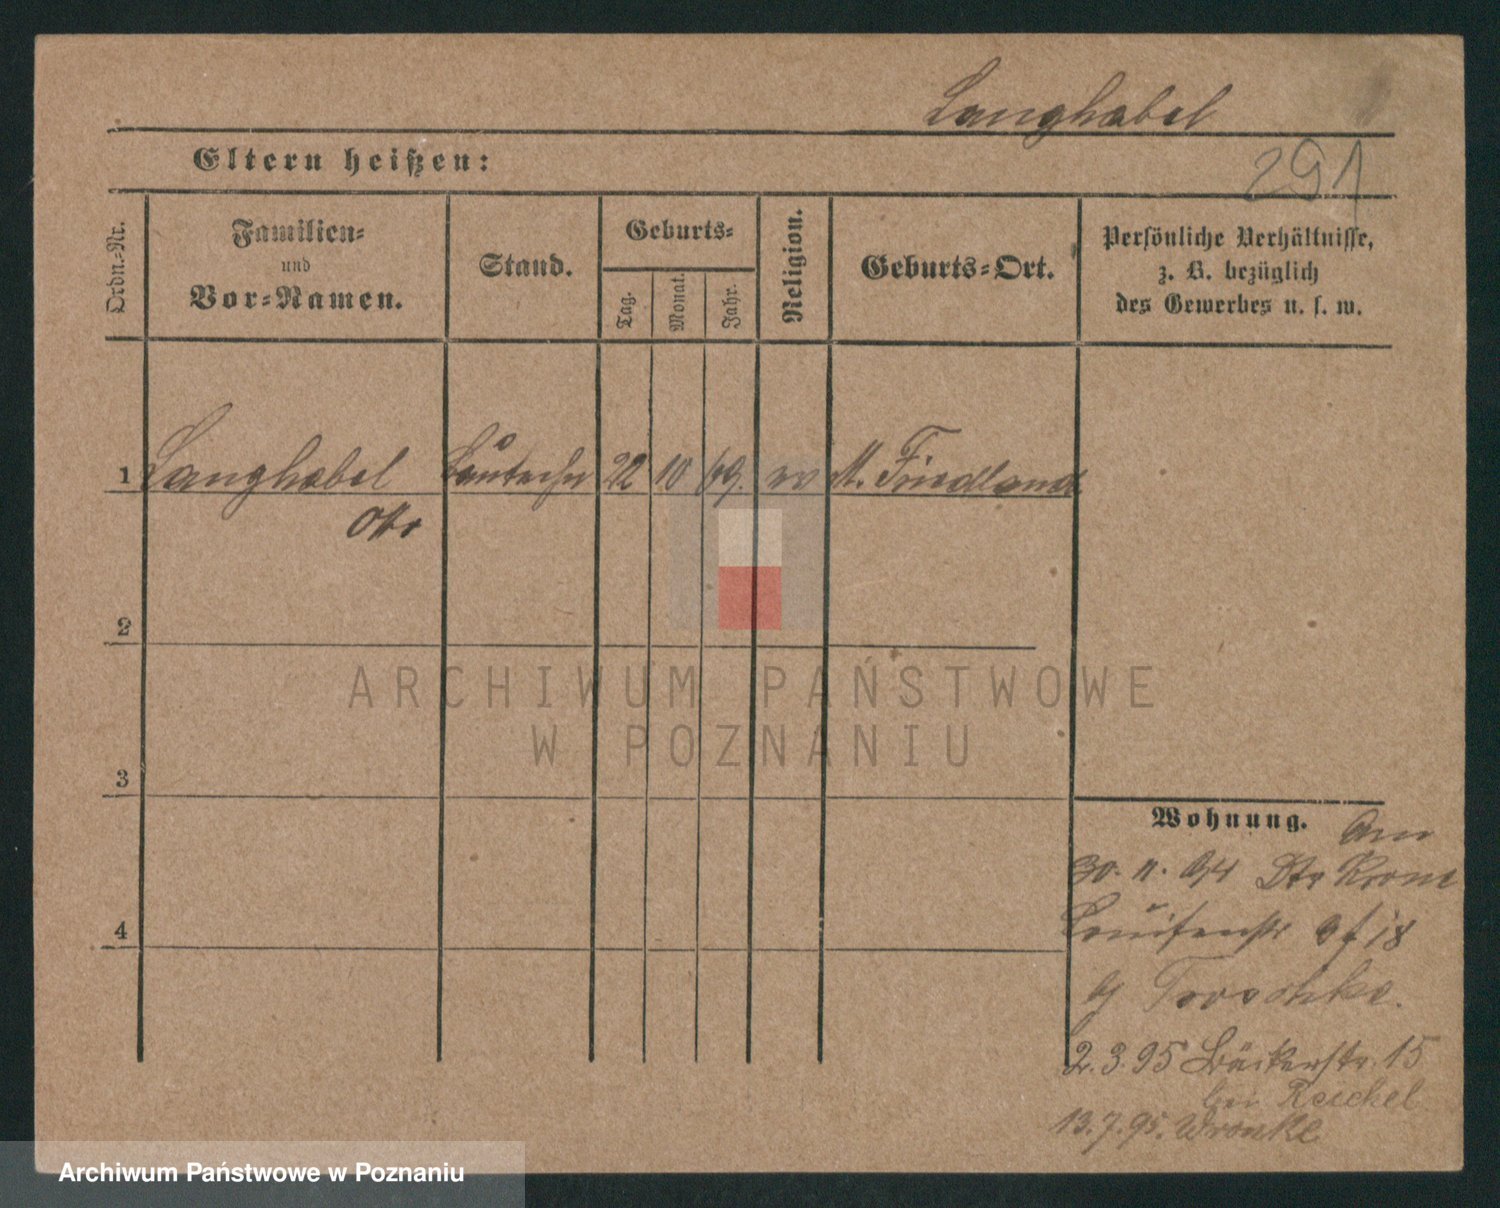 Langhabel
Eltern heißen:
291
Ordn.-Nr.
Familien-
und
Vor-Namen.
Stand.
Geburts-
Tag.
Monat.
Jahr.
Religion.
Geburts-Ort.
Persönliche Verhältnisse,
z. B. bezüglich
des Gewerbes u. s. w.
1 Langhabel Bautechn 22 10 69. ev M. Friedland
Otto
2
3
4
Wohnung. Am
30. 11. 94 Dt. Krone
Louisenstr 18
2.3.95 Bäckerstr. 15
bei Reichel
13.7.95. Wronke
ARCHIWUM PAŃSTWOWE
W POZNANIU
Archiwum Państwowe w Poznaniu